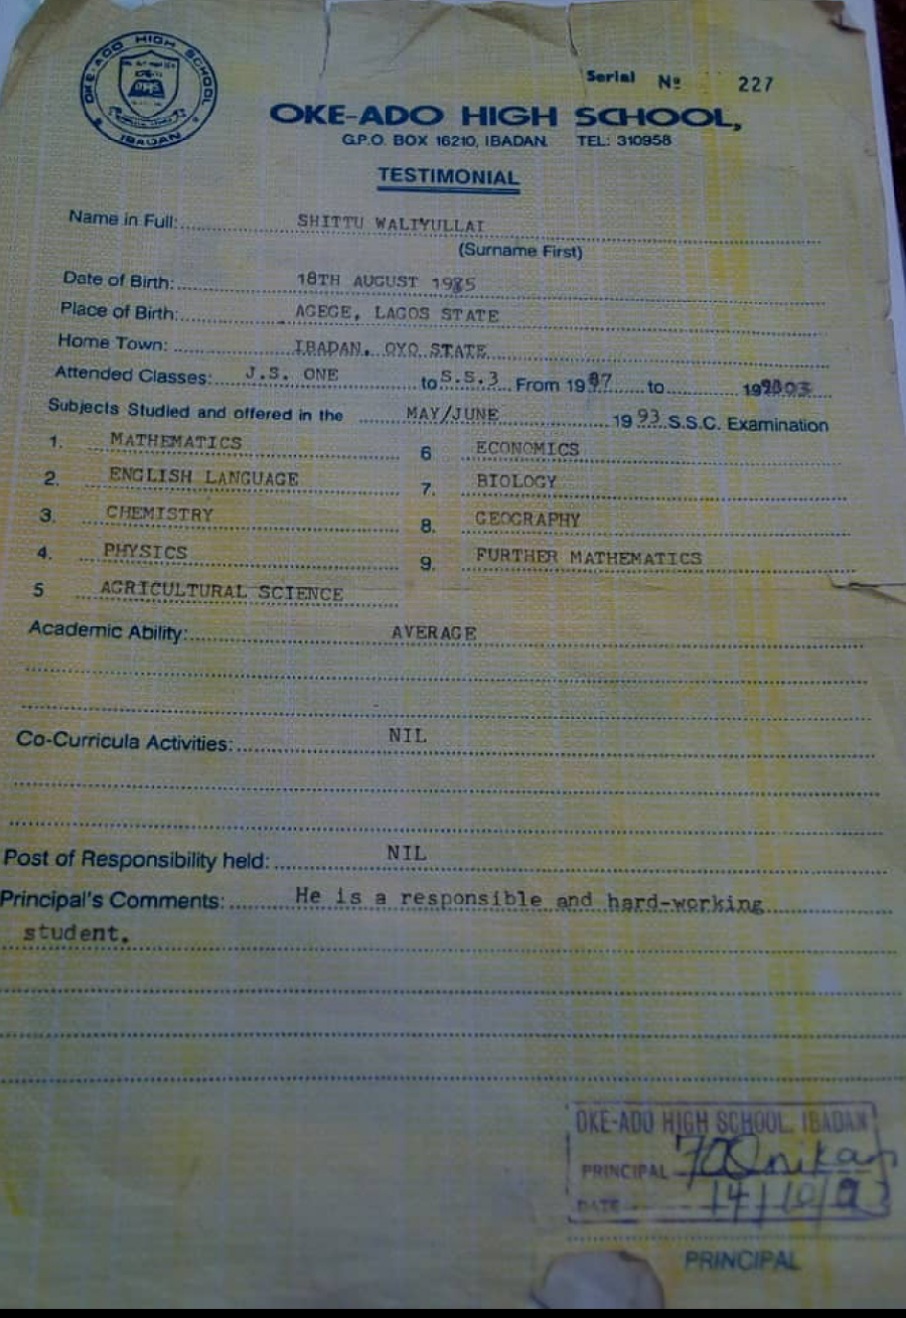 OKE-ADO HIGH SCHOOL
IBADAN
Serial Nº 227
OKE-ADO HIGH SCHOOL,
G.P.O. BOX 16210, IBADAN. TEL: 310958
TESTIMONIAL
Name in Full: SHITTU WALIYULLAI
(Surname First)
Date of Birth: 18TH AUGUST
Place of Birth: AGEGE, LAGOS STATE
Home Town: IBADAN, OYO STATE
Attended Classes: J.S. ONE to S.S.3 From 19 to
Subjects Studied and offered in the MAY/JUNE 19 93 S.S.C. Examination
1. MATHEMATICS 6 ECONOMICS
2. ENGLISH LANGUAGE 7. BIOLOGY
3. CHEMISTRY 8. GEOGRAPHY
4. PHYSICS 9. FURTHER MATHEMATICS
5 AGRICULTURAL SCIENCE
Academic Ability: AVERAGE
Co-Curricula Activities: NIL
Post of Responsibility held: NIL
Principal's Comments: He is a responsible and hard-working
student.
OKE-ADO HIGH SCHOOL, IBADAN
PRINCIPAL
DATE
PRINCIPAL